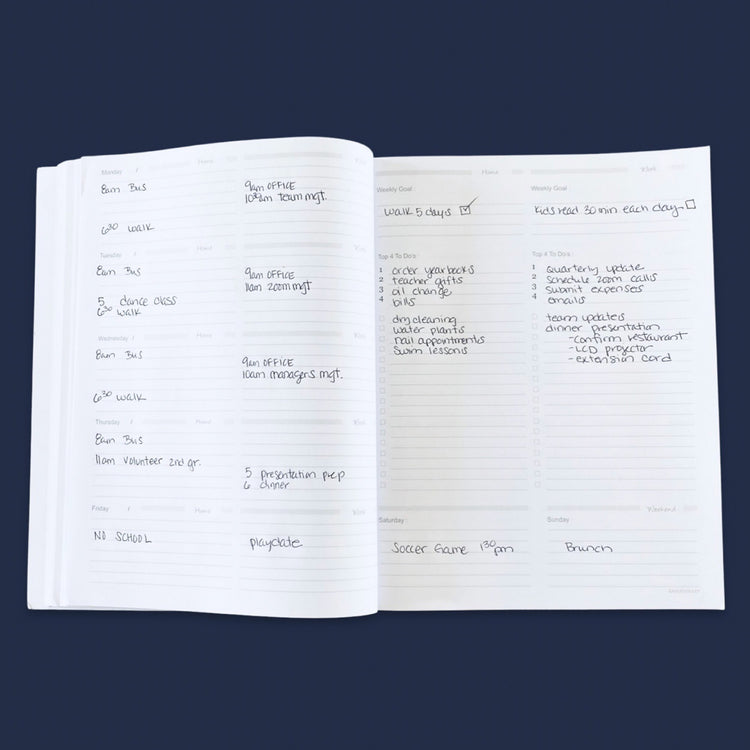 Monday /
Home
Work
8am Bus
9am OFFICE
10:30am Team mgt.
6:30 walk
Tuesday /
Home
Work
8am Bus
9am OFFICE
11am zoom mgt
5 dance class
6:30 walk
Wednesday /
Home
Work
8am Bus
9am OFFICE
10am managers mgt.
6:30 walk
Thursday /
Home
Work
8am Bus
11am volunteer 2nd gr.
5 presentation prep
6 dinner
Friday /
Home
Work
NO SCHOOL
playdate
Home
Weekly Goal :
walk 5 days
Top 4 To Do's :
1 order yearbooks
2 teacher gifts
3 oil change
4 bills
dry cleaning
water plants
nail appointments
swim lessons
Work
Weekly Goal :
kids read 30 min each day
Top 4 To Do's :
1 quarterly update
2 schedule zoom calls
3 submit expenses
4 emails
team updates
dinner presentation
-confirm restaurant
-LCD projector
-extension cord
Weekend
Saturday
Soccer Game 1:30pm
Sunday
Brunch